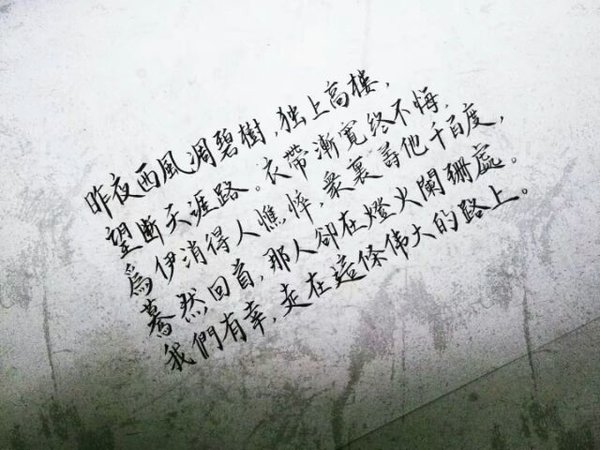 昨夜西風凋碧樹，独上高樓，
望断天涯路。衣帶漸寬終不悔，
為伊消得人憔悴，衆裏尋他千百度，
驀然回首，那人卻在燈火闌珊處。
我們有幸，走在這條偉大的路上。